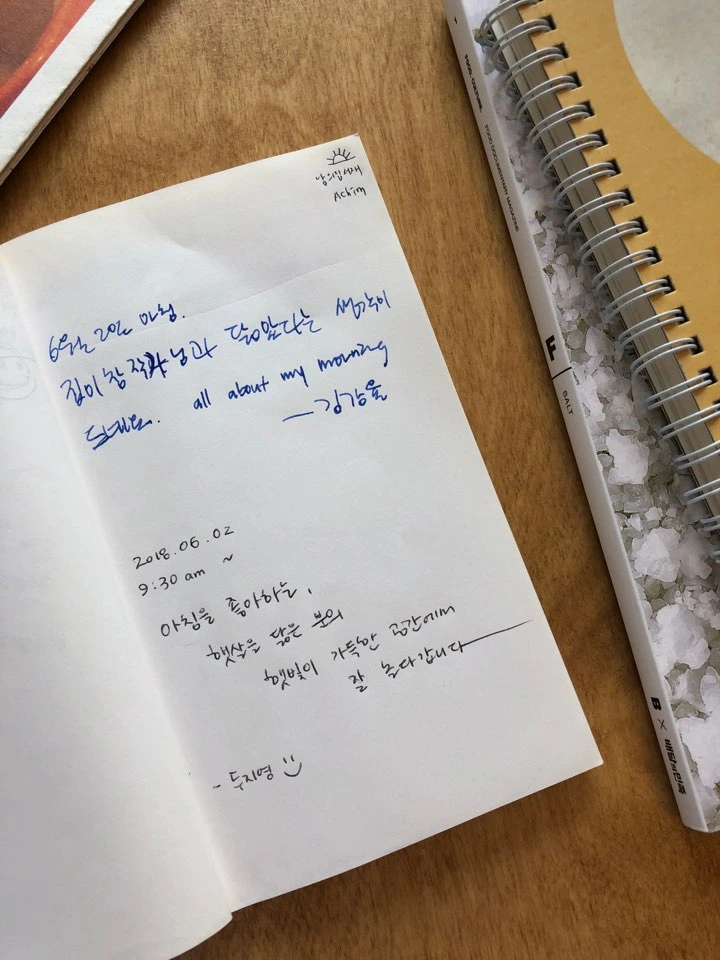 남의집 서재
Achim
6월 2일 아침.
집이 참 작가님과 닮았다는 생각이
드네요. all about my morning
— 김강율
2018.06.02
9:30 am ~
아침을 좋아하는,
햇살을 닮은 분의
햇빛이 가득한 공간에서
잘 놀다갑니다
- 두지영
FOOD. CULTURE.
FOOD DOCUMENTARY MAGAZINE
F
SALT
B × 배달의민족